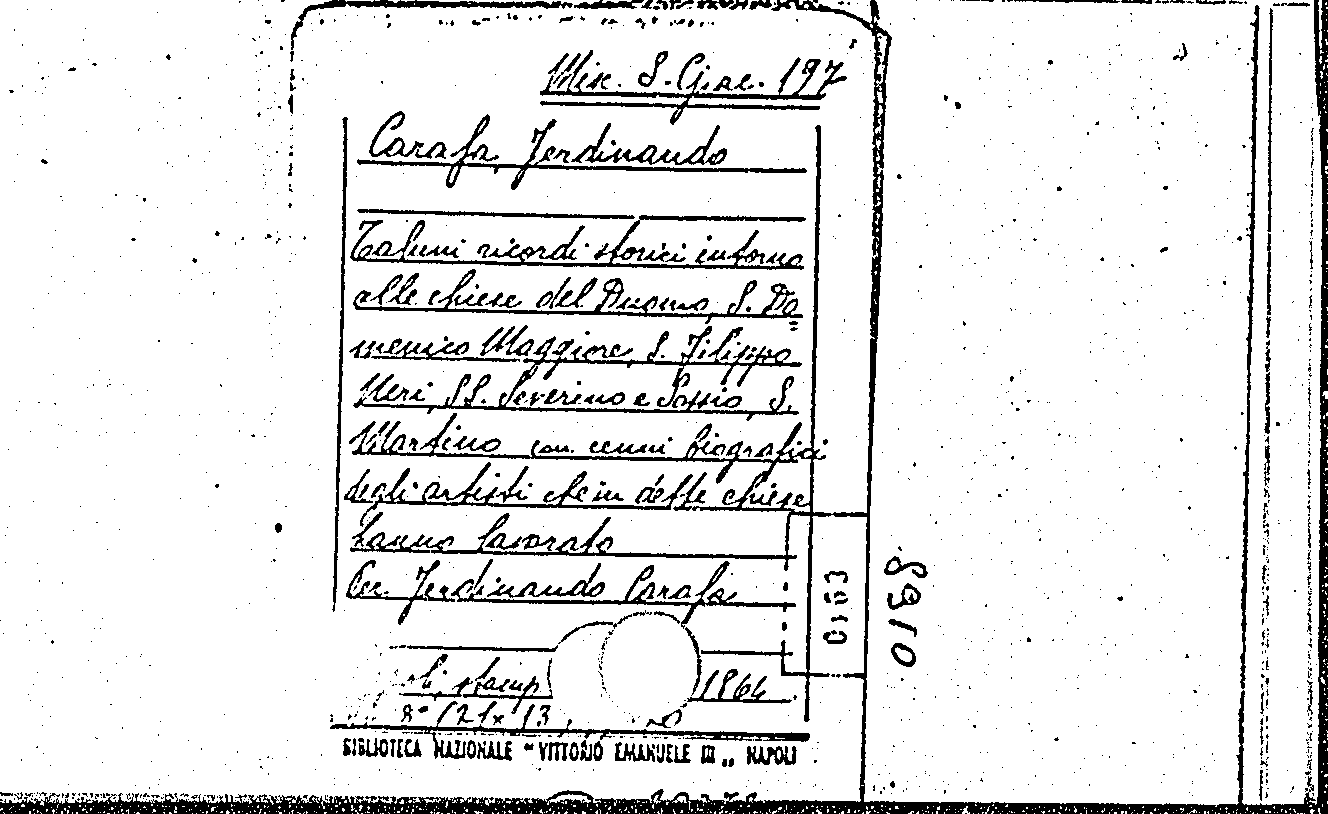 Misc. S. Giac. 197
Carafa, Ferdinando
Taluni ricordi storici intorno
alle chiese del Duomo, S. Do=
menico Maggiore, S. Filippo
Neri, SS. Severino e Sossio, S.
Martino con cenni biografici
degli artisti che in dette chiese
hanno lavorato
Per Ferdinando Carafa
stamp 1864
8° (21x13
BIBLIOTECA NAZIONALE "VITTORIO EMANUELE III„ NAPOLI
0163